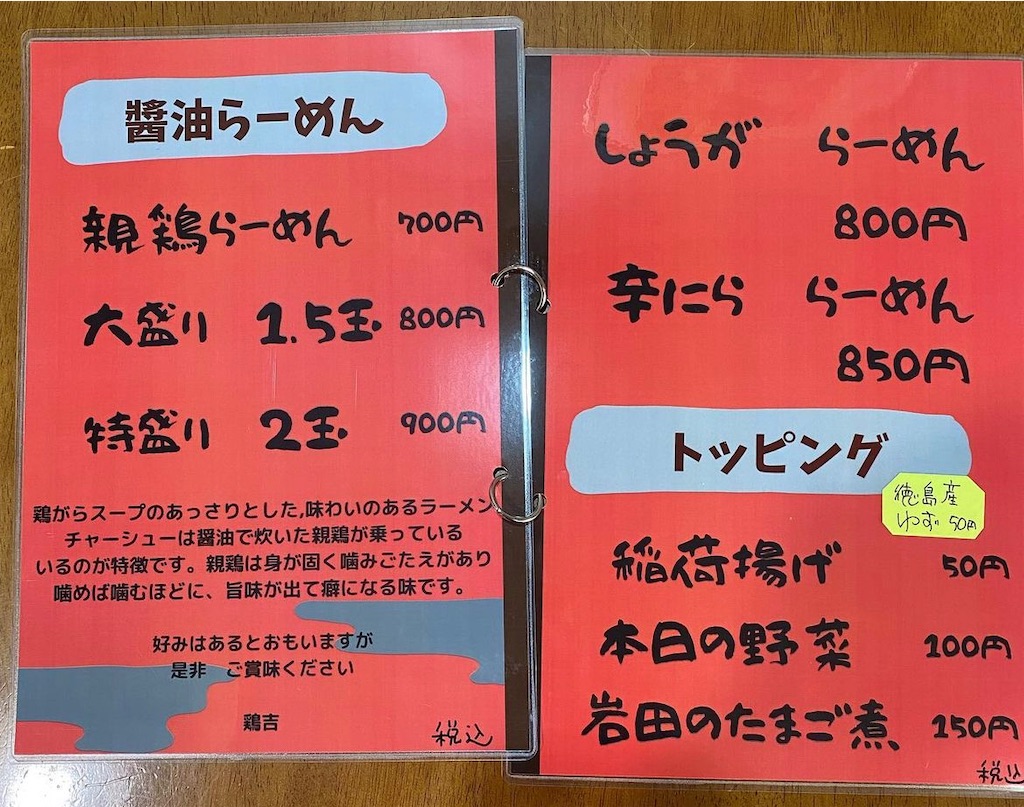 醬油らーめん
親鶏らーめん 700円
大盛り 1.5玉 800円
特盛り 2玉 900円
鶏がらスープのあっさりとした,味わいのあるラーメン
チャーシューは醤油で炊いた親鶏が乗っている
いるのが特徴です。親鶏は身が固く噛みごたえがあり
噛めば噛むほどに、旨味が出て癖になる味です。
好みはあるとおもいますが
是非 ご賞味ください
鶏吉
税込
しょうが らーめん
800円
辛にら らーめん
850円
トッピング
徳島産
ゆず 50円
稲荷揚げ 50円
本日の野菜 100円
岩田のたまご煮 150円
税込